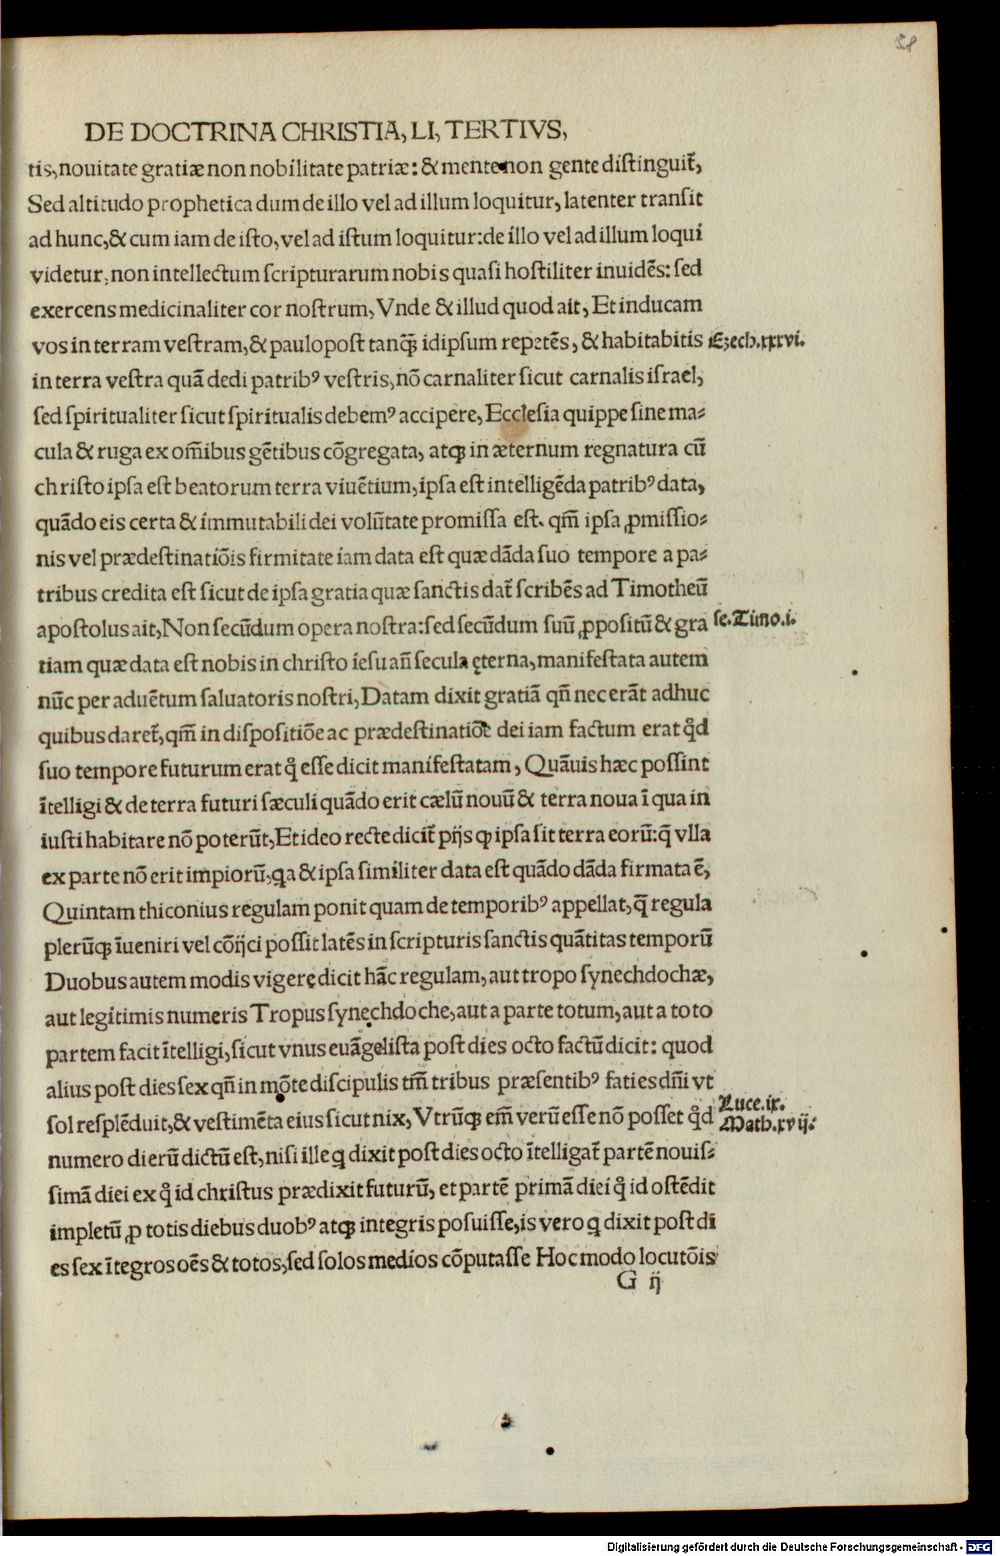 38
DE DOCTRINA CHRISTIA, LI, TERTIVS,
tis, nouitate gratiæ non nobilitate patriæ: & mente non gente distinguit̃,
Sed altitudo prophetica dum de illo vel ad illum loquitur, latenter transit
ad hunc, & cum iam de isto, vel ad istum loquitur: de illo vel ad illum loqui
videtur, non intellectum scripturarum nobis quasi hostiliter inuidẽs: sed
exercens medicinaliter cor nostrum, Vnde & illud quod ait, Et inducam
vos in terram vestram, & paulopost tanq̃ idipsum repetẽs, & habitabitis Ezech.xxxvi.
in terra vestra quã dedi patribꝰ vestris, nõ carnaliter sicut carnalis israel,
sed spiritualiter sicut spiritualis debemꝰ accipere, Ecclesia quippe sine ma-
cula & ruga ex om̃ibus gẽtibus cõgregata, atqꝫ in æternum regnatura cũ
christo ipsa est beatorum terra viuẽtium, ipsa est intelligẽda patribꝰ data,
quãdo eis certa & immutabili dei volũtate promissa est. qm̃ ipsa ꝓmissio-
nis vel prædestinatiõis firmitate iam data est quæ dãda suo tempore a pa-
tribus credita est sicut de ipsa gratia quæ sanctis dat̃ scribẽs ad Timotheũ
apostolus ait, Non secũdum opera nostra: sed secũdum suũ ꝓpositũ & gra se.Timo.i.
tiam quæ data est nobis in christo iesu añ secula ęterna, manifestata autem
nũc per aduẽtum saluatoris nostri, Datam dixit gratiã qñ nec erãt adhuc
quibus daret̃, qm̃ in dispositiõe ac prædestinatiõe dei iam factum erat qd̃
suo tempore futurum erat q̊ esse dicit manifestatam, Quãuis hæc possint
ĩtelligi & de terra futuri sæculi quãdo erit cælũ nouũ & terra noua ĩ qua in
iusti habitare nõ poterũt, Et ideo recte dicit̃ pijs ꝙ ipsa sit terra eorũ: q̃ vlla
ex parte nõ erit impiorũ, qa & ipsa similiter data est quãdo dãda firmata ẽ,
Quintam thiconius regulam ponit quam de temporibꝰ appellat, q̃ regula
plerũqꝫ ĩueniri vel cõijci possit latẽs in scripturis sanctis quãtitas temporũ
Duobus autem modis vigere dicit hãc regulam, aut tropo synechdochæ,
aut legitimis numeris Tropus synechdoche, aut a parte totum, aut a toto
partem facit ĩtelligi, sicut vnus euãgelista post dies octo factũ dicit: quod
alius post dies sex qñ in mõte discipulis tm̃ tribus præsentibꝰ faties dñi vt
sol resplẽduit, & vestimẽta eius sicut nix, Vtrũqꝫ em̃ verũ esse nõ posset qd̃ Luce.ix. Math.xvij.
numero dierũ dictũ est, nisi ille q dixit post dies octo ĩtelligat̃ partẽ nouis-
simã diei ex q̊ id christus prædixit futurũ, et partẽ primã diei q̊ id ostẽdit
impletũ ꝓ totis diebus duobꝰ atqꝫ integris posuisse, is vero q dixit post di
es sex ĩtegros oẽs & totos, sed solos medios cõputasse Hoc modo locutõis
G ij
Digitalisierung gefördert durch die Deutsche Forschungsgemeinschaft - DFG